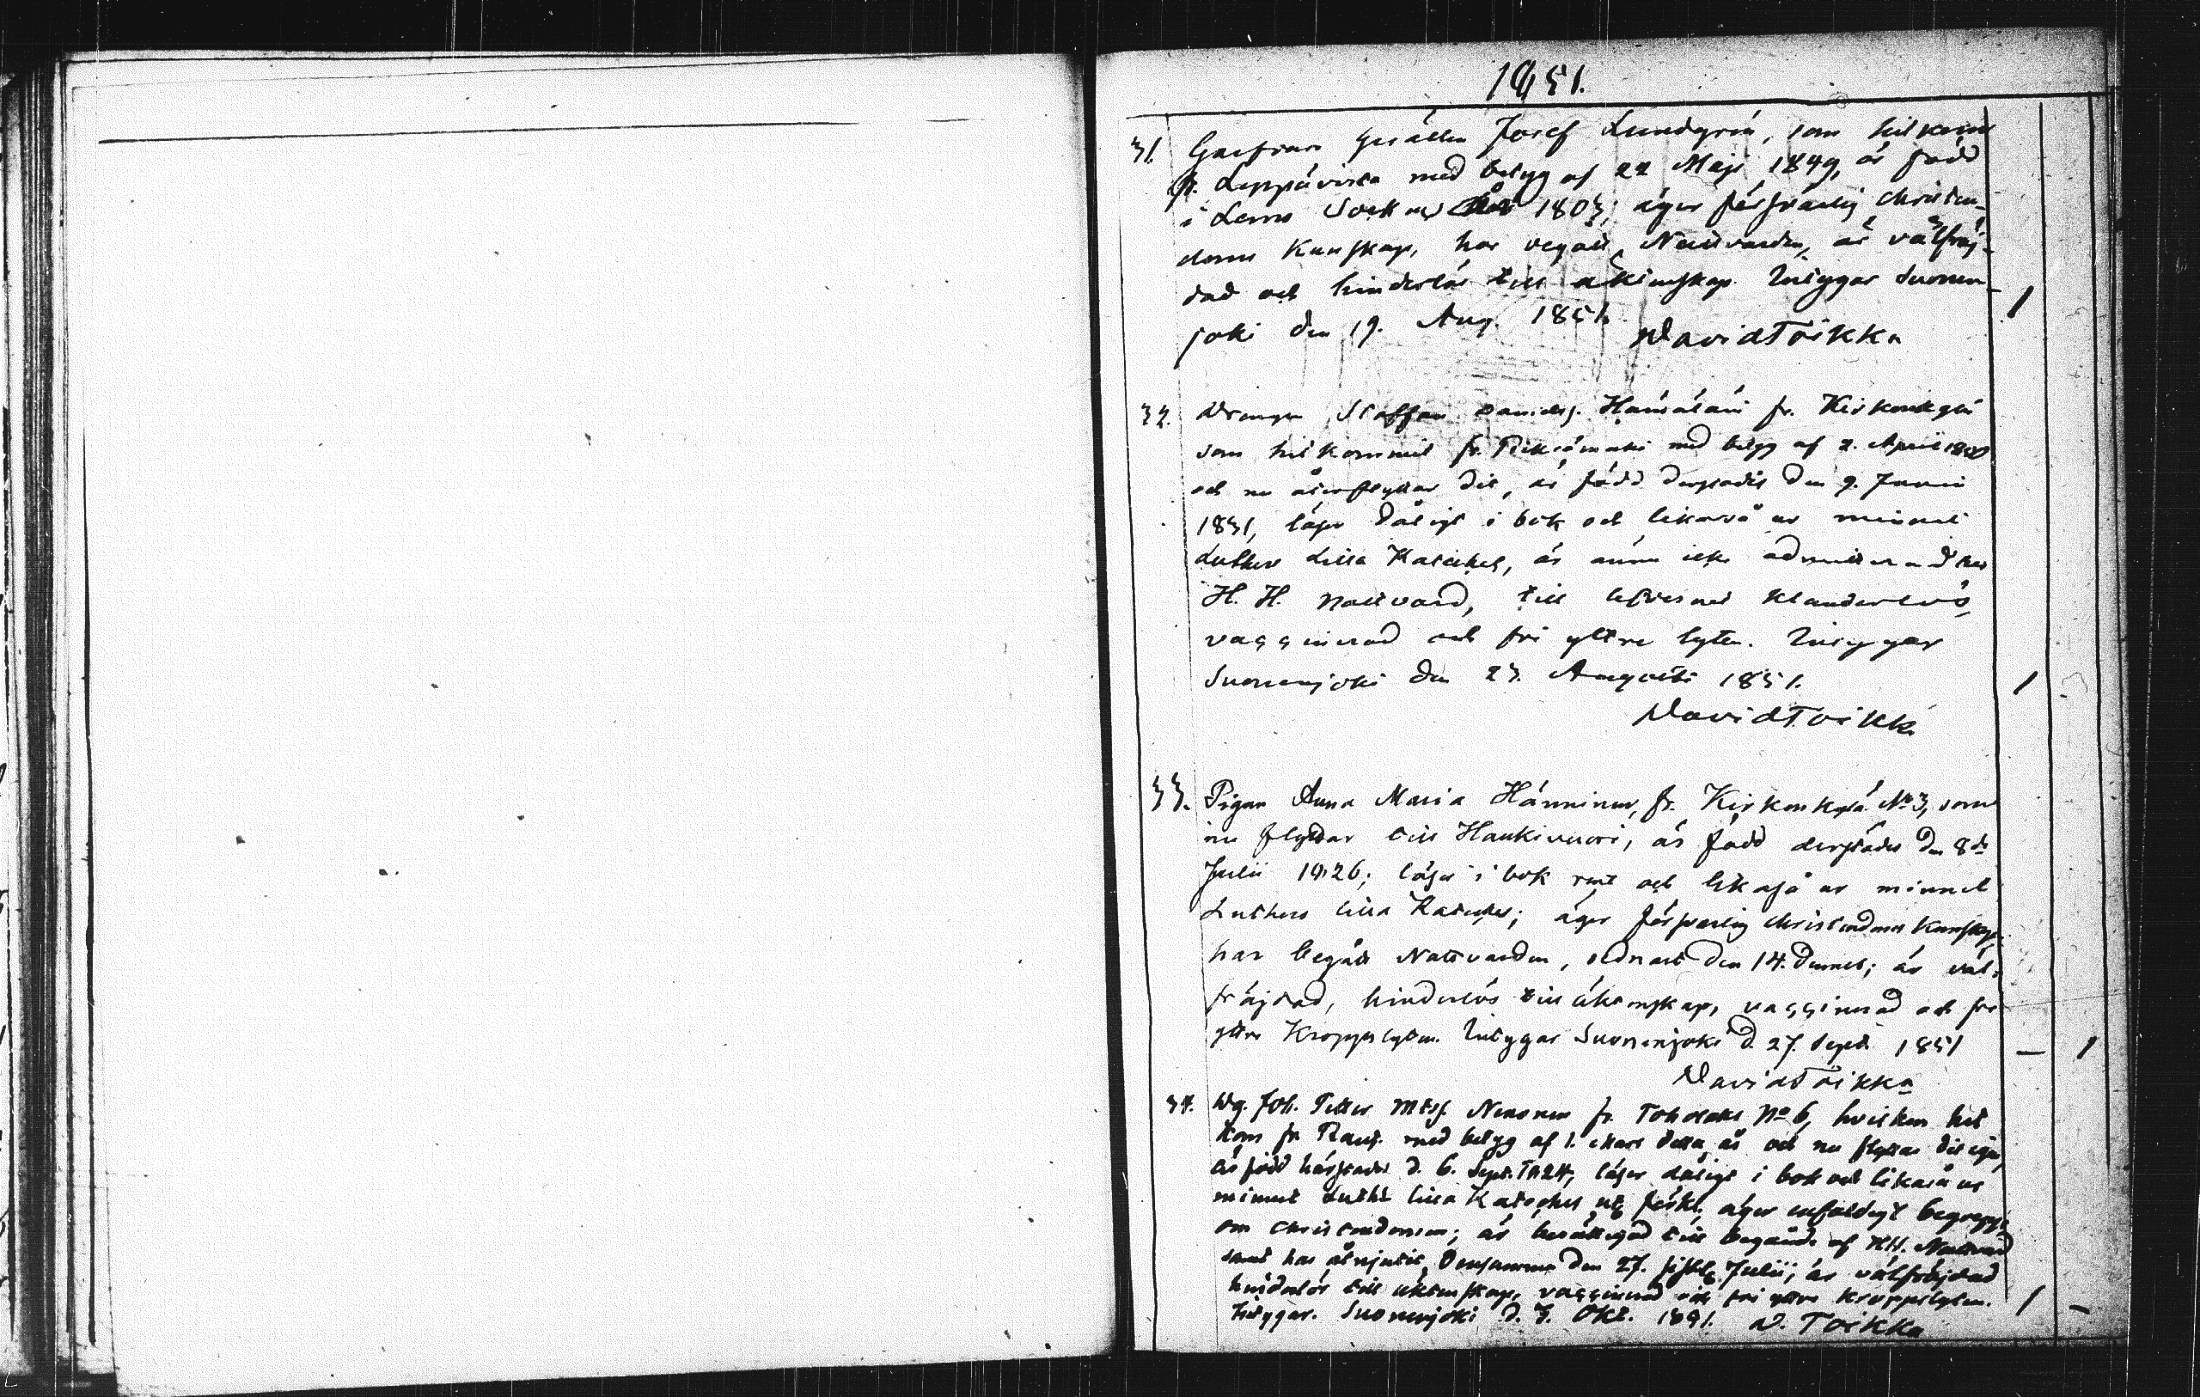 1851.
31. Garfvare Gesällen Josef Lundgrén, som hitkom
fr. Leppävirta med betyg af 22 Maji 1849, är född
i Lemo Sockn år 1803; äger försvarlig Christen-
doms Kunskap, har begått Nattvarden, är välfräj-
dad och hinderlös till äktenskap. Intygar Suonen-
joki den 19. Aug. 1851.
David Toikka
32. Drengen Staffan Danielss. Hämäläin fr. Kirkonkylä
som hitkommit fr. Pieksämäki med betyg af 2. April 1850
och nu återflyttar dit, är född derstädes den 9. Junii
1831, läser dåligt i bok och likaså ur minnet
Luthers Lilla Kateches, är ännu icke admitterad till
H. H. Nattvard, till lefvernet klanderlös,
vaccinerad och fri yttre lyten. Intygar
Suonenjoki den 23. Augusti 1851.
David Toikka
33. Pigan Anna Maria Hänninen, fr. Kirkonkylä No 3, som
nu flyttar till Haukivuori, är född derstädes den 8de
Julii 1826; läser i bok rent och likaså ur minnet
Luthers lilla Kateches; äger försvarlig Christendoms Kunskap,
har begått Nattvarden, sednast den 14. dennes; är väl-
fräjdad, hinderlös till äktenskap, vaccinerad och fri
yttre Kroppslyten. Intygar Suonenjoki d. 27. Sept. 1851
David Toikka
34. Dg. Joh. Petter Mtsf. Nenonen fr. Toholaks No 6, hvilken hit
kom fr. Raut. med betyg af 1. Mars detta år och nu flyttar dit igen,
är född härstädes d. 6. Sept. 1824, läser dåligt i bok och likaså ur
minnet Luth. lilla Kateches utz förkl., äger enfaldigt begrepp
om Christendomen; är berättigad till begående af HH. Nattvard
samt har åtnjutit densamma den 27. sistl. Julii; är välfräjdad
hinderlös till äktenskap, vaccinerad och fri yttre kroppslyten.
Intygar. Suonenjoki d. 3. Okt. 1851. D. Toikka